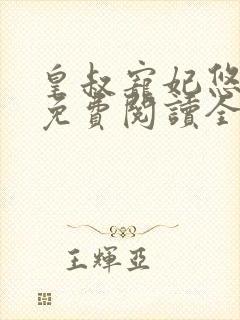 皇叔寵妃悠
免費閱讀全
王輝亞